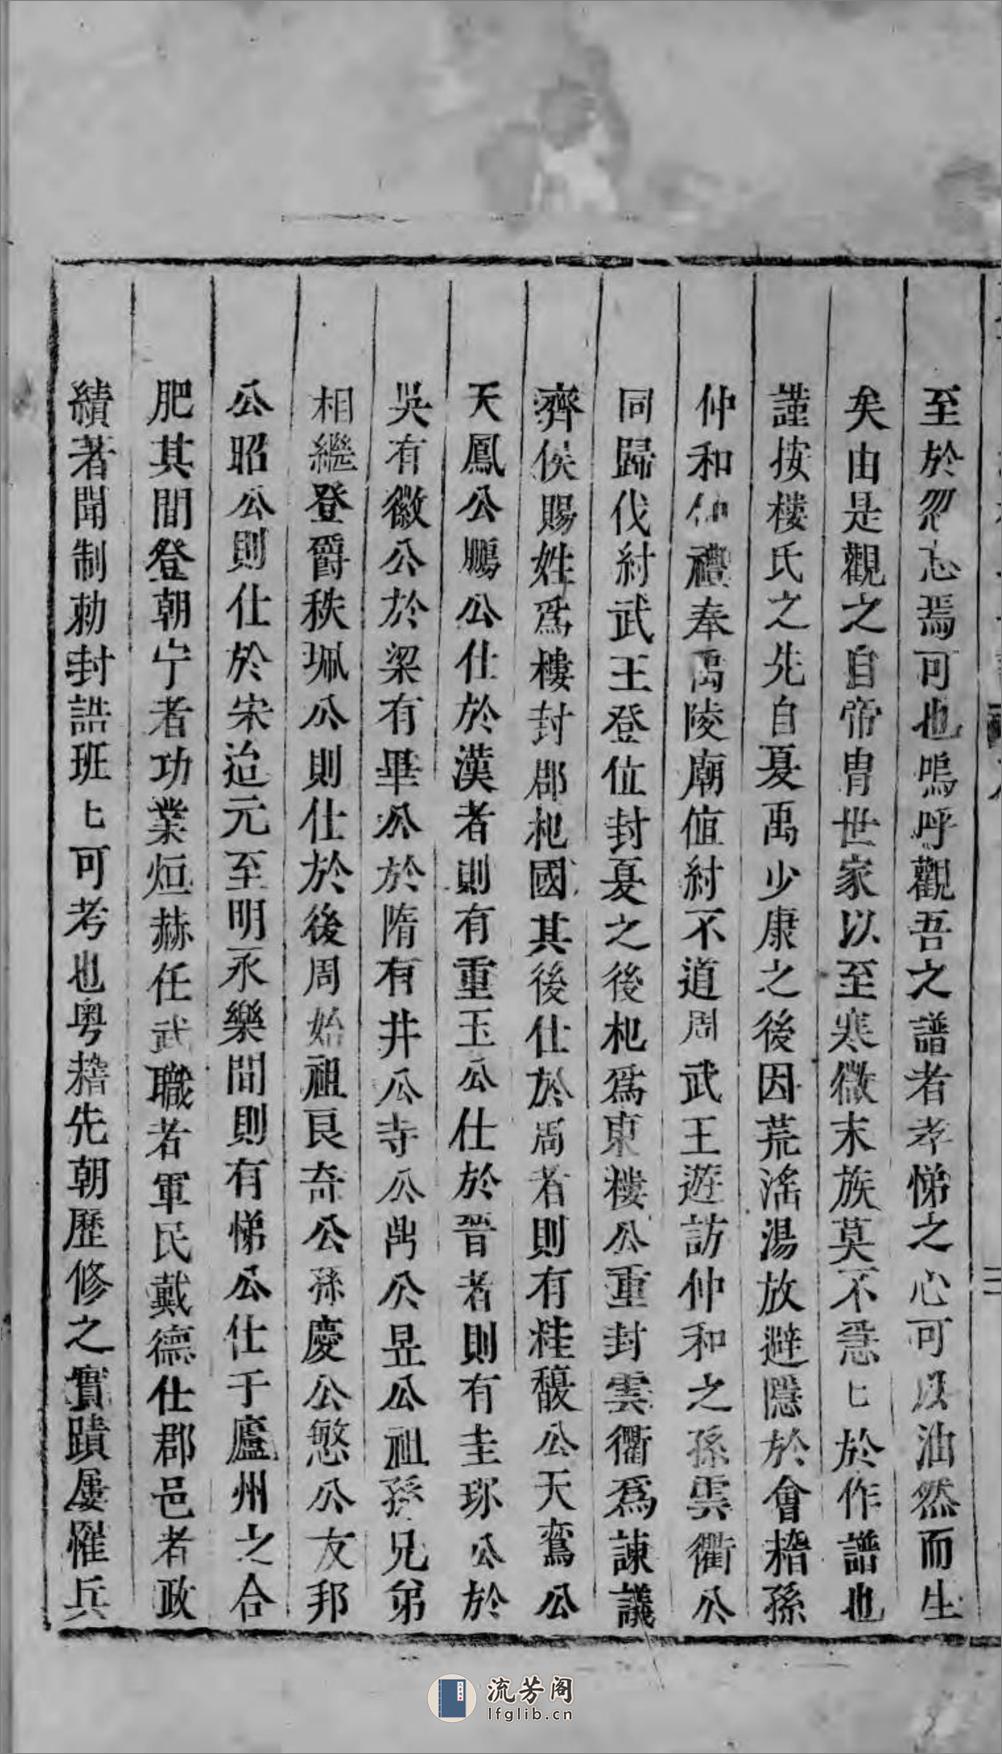 至於忽忘焉可也嗚呼觀吾之譜者孝悌之心可以油然而生
矣由是觀之自帝胄世家以至寒微末族莫不急匕於作譜也
謹按樓氏之先自夏禹少康之後因荒滛湯放避隱於會稽孫
仲和仲禮奉禹陵廟値紂不道周武王遊訪仲和之孫雲衢公
同歸伐紂武王登位封夏之後杞爲東樓公重封雲衢爲諫議
齊侯賜姓爲樓封郡杞國其後仕於周者則有桂馥公天鸞公
天鳳公鵬公仕於漢者則有重玉公仕於晋者則有圭琊公於
吳有徽公於梁有畢公於隋有井公寺公尚公昱公祖孫兄弟
相繼登爵秩珮公則仕於後周始祖良奇公孫慶公慜公友邦
公昭公則仕於宋迨元至明永樂間則有悌公仕于廬州之合
肥其間登朝宁者功業烜赫任武職者軍民戴德仕郡邑者政
績著聞制勅封誥班匕可考也粤稽先朝歷修之實蹟屢罹兵
流芳阁
lfglib.cn